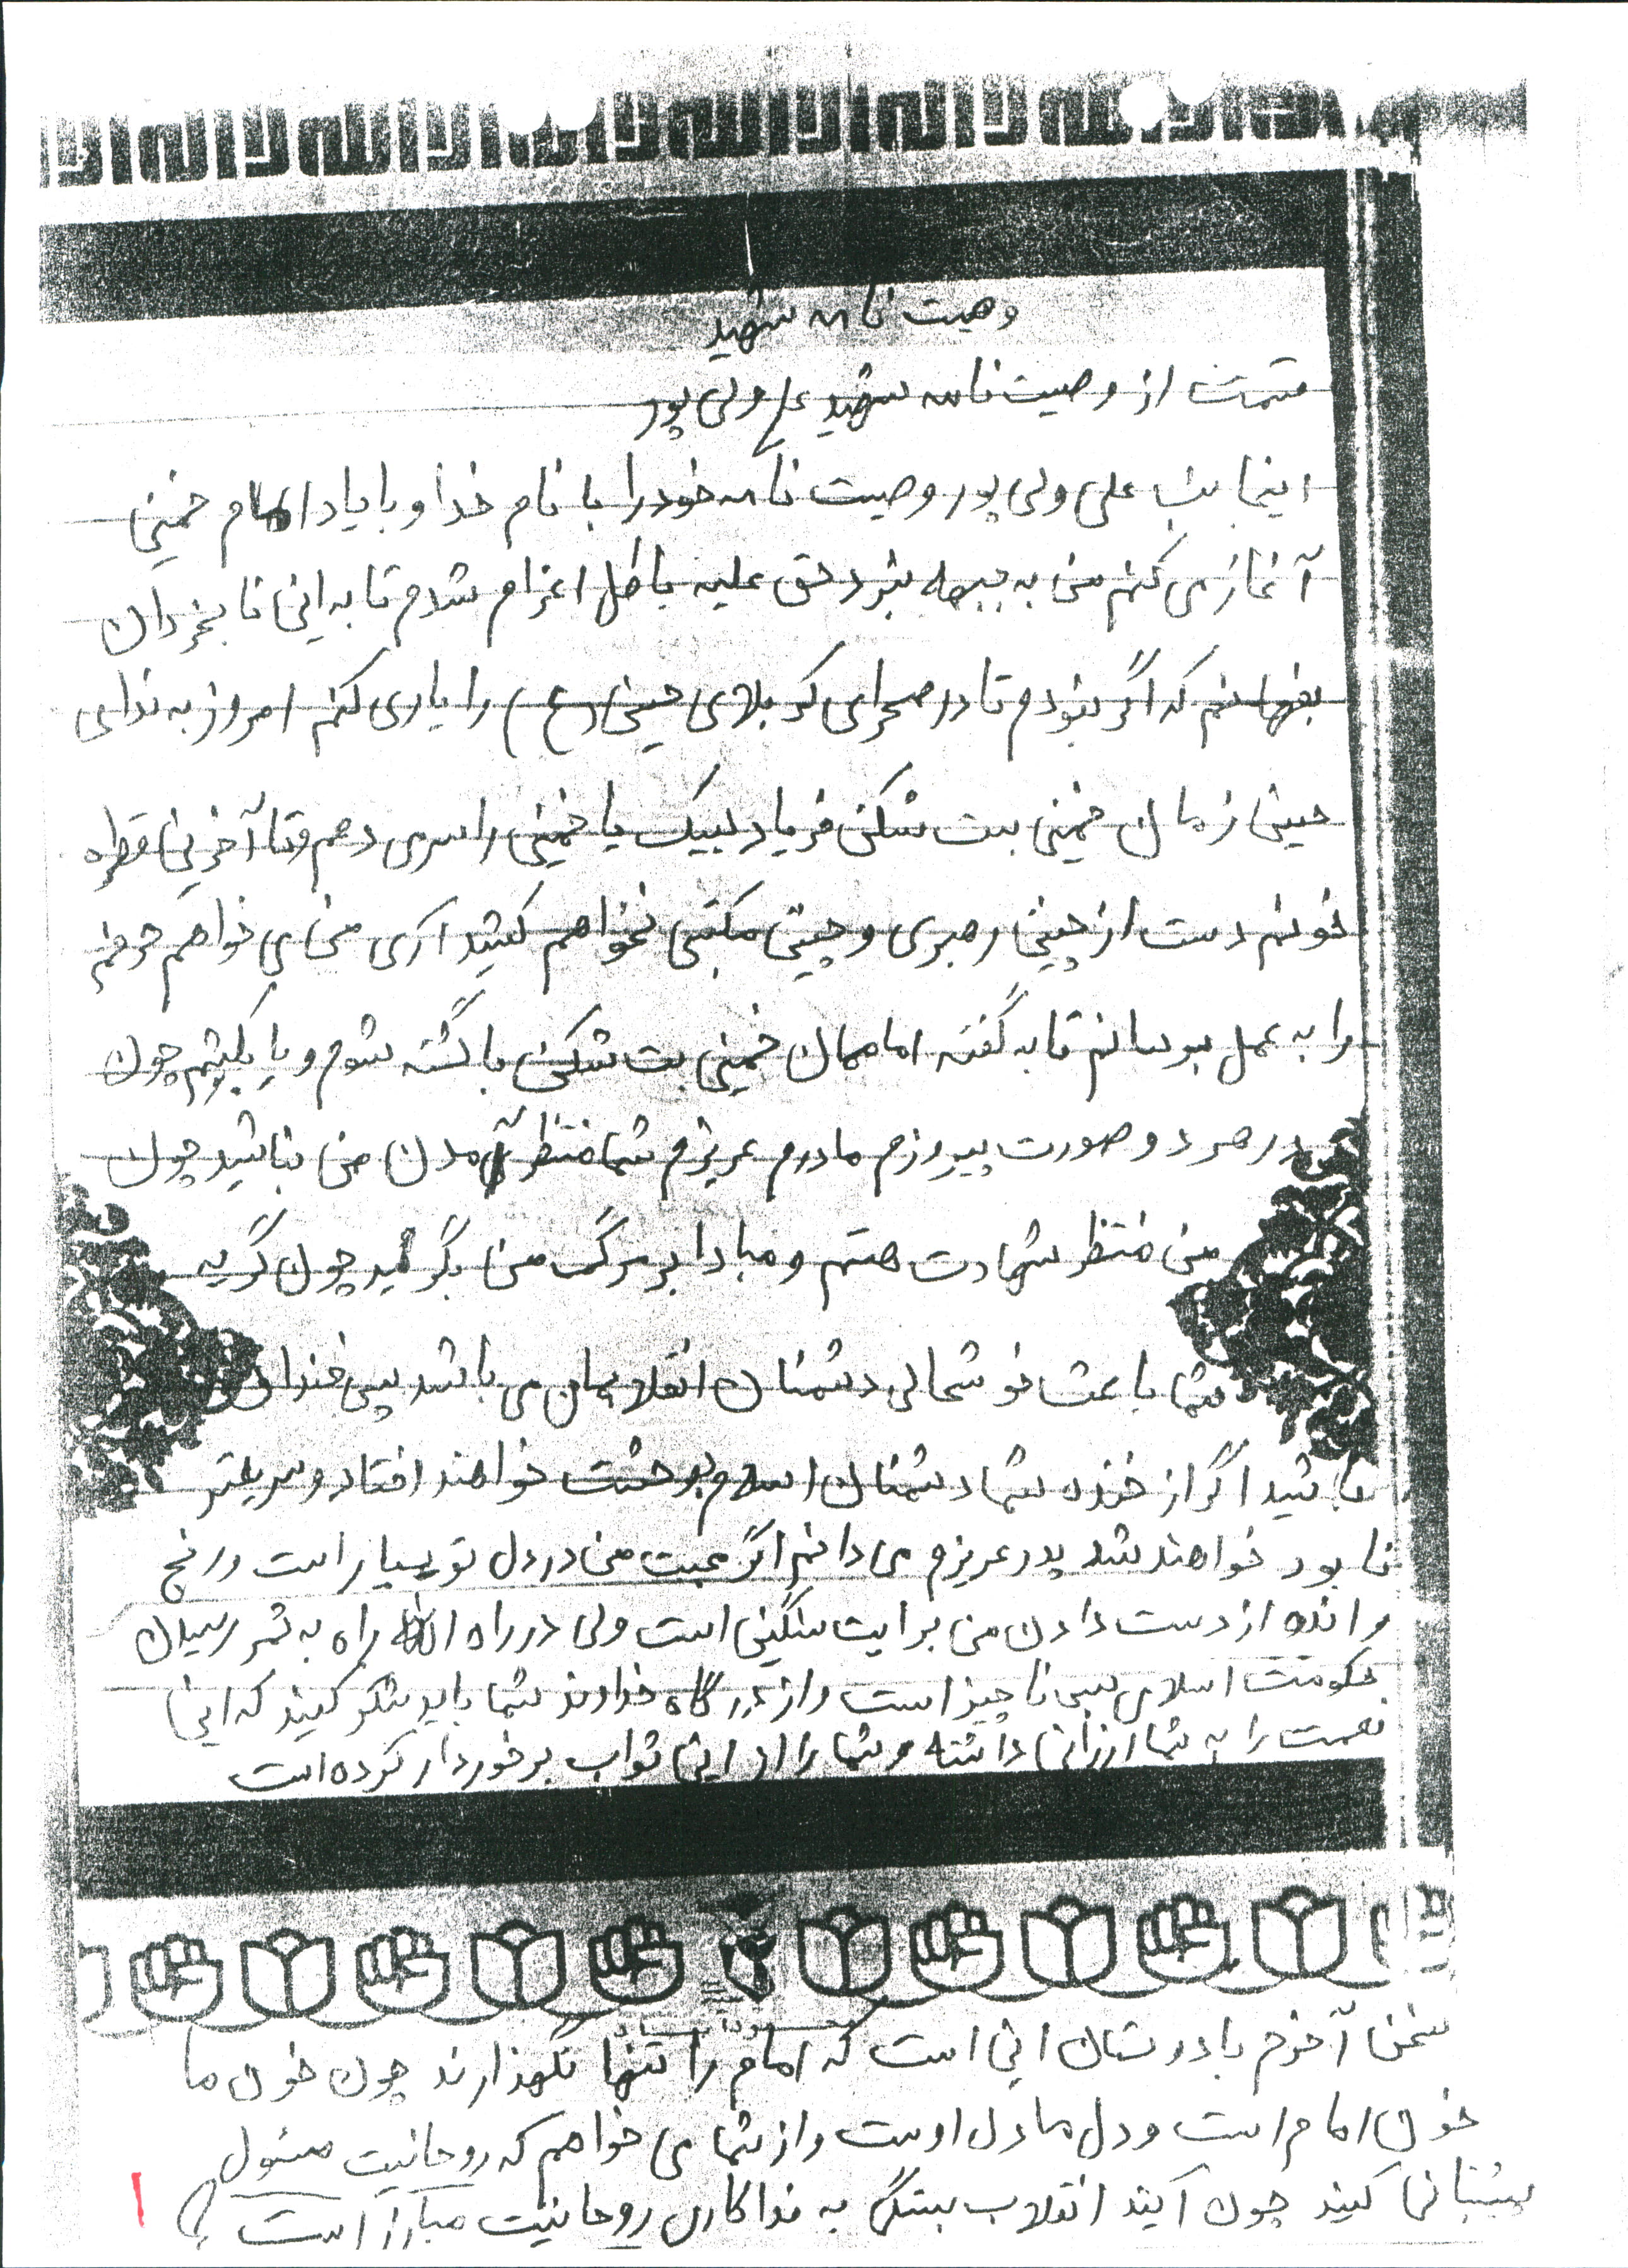 وصیت نامه شهید
قسمت از وصیت نامه شهید علی ولی پور
اینجانب علی ولی پور وصیت نامه خود را با نام خدا و با یاد امام خمینی
آغاز می کنم من به جبهه نبرد حق علیه باطل اعزام شدم تا به این نابخردان
بفهمانم که اگر نبودم تا در صحرای کربلای حسین (ع) را یاری کنم امروز به ندای
حسین زمان خمینی بت شکن فریاد لبیک یا خمینی را سر می دهم و تا آخرین قطره
خونم دست از چنین رهبری و چنین مکتبی نخواهم کشید آری من می خواهم حرفم
را به عمل برسانم تا به گفته اماممان خمینی بت شکن یا کشته شوم و یا بکشم چون
در هر دو صورت پیروزم مادرم عزیزم شما منتظر آمدن من نباشید چون
من منتظر شهادت هستم و مبادا بر مرگ من بگریید چون گریه
شما باعث خوشحالی دشمنان انقلابمان می باشد پس خندان
باشید اگر از خنده شما دشمنان اسلام بوحشت خواهند افتاد و سریعتر
نابود خواهند شد پدر عزیزم می دانم اگر محبت من در دل تو بسیار است و رنج
و انده از دست دادن من برایت سنگین است ولی در راه الله راه به ثمر رسیدن
حکومت اسلامی بس ناچیز است و از درگاه خداوند شما باید شکر کنید که این
نعمت را به شما ارزانی داشته و شما را از این ثواب برخوردار کرده است
سخن آخرم با دوستان این است که امام را تنها نگهذارند چون خون ما
خون امام است و دل ما دل اوست و از شما می خواهم که روحانیت مسئول
پشتیبانی کنید چون آیند انقلاب بستگی به فداکاری روحانیت مبارز است